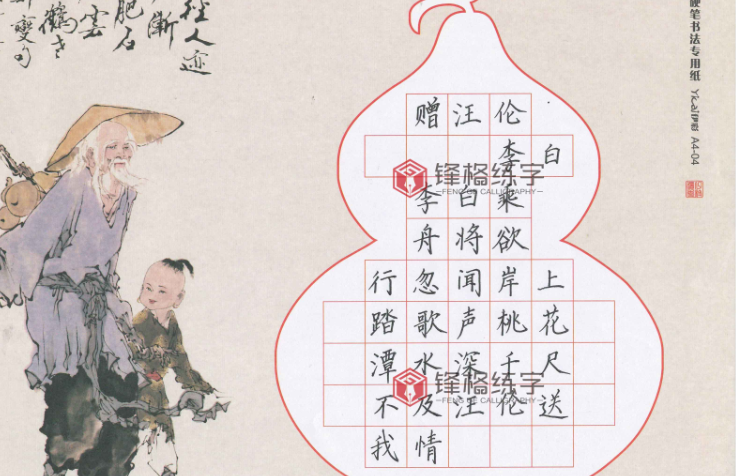 人迹
渐
肥石
雲
赠汪伦
李白
锋格练字
FENG GE CALLIGRAPHY
李白乘
舟将欲
行忽闻岸上
踏歌声桃花
潭水深千尺
锋格练字
FENG GE CALLIGRAPHY
不及汪伦送
我情
硬笔书法专用纸
A4-04